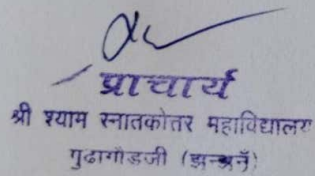 प्राचार्य
श्री श्याम स्नातकोतर महाविद्यालय
गुढागौडजी (झुन्झुनूँ)